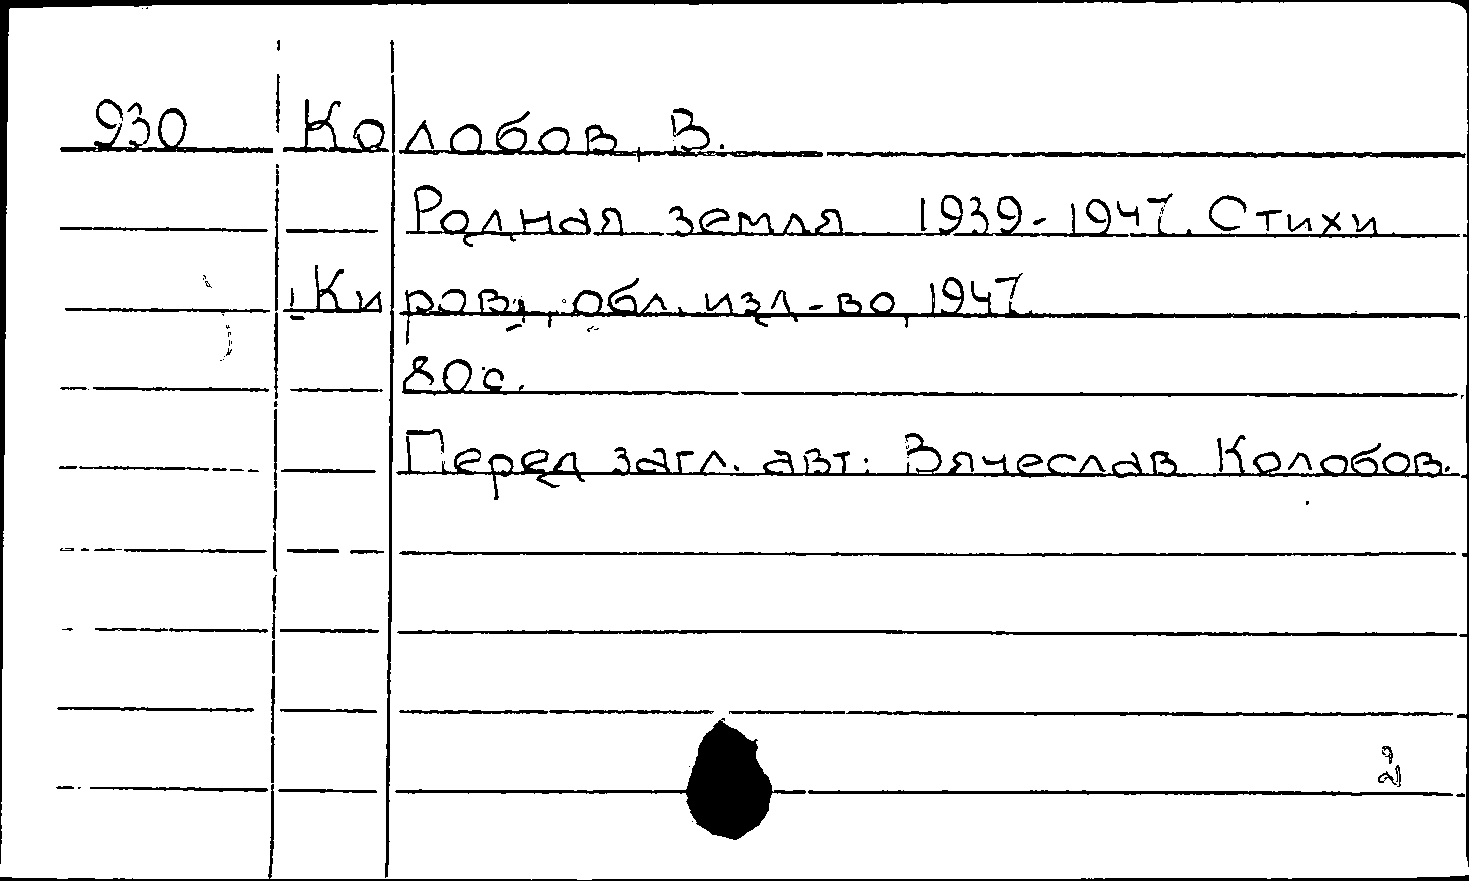 930 Колобов, В.
Родная земля 1939-1947. Стихи
[Киров], обл. изд-во, 1947.
80с.
Перед загл. авт.: Вячеслав Колобов.